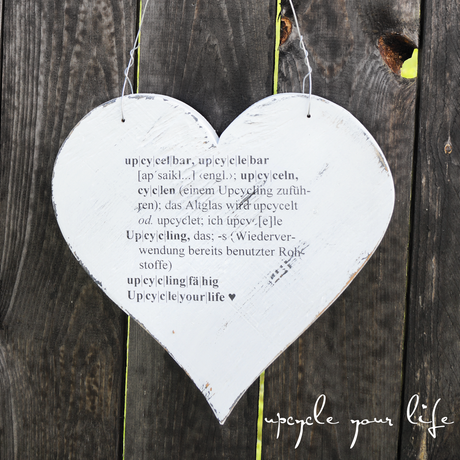 up|cy|cel|bar, up|cy|c|le|bar
[ap'saikl...] ‹engl.›; up|cy|celn,
cy|c|len (einem Upcycling zufüh-
ren); das Altglas wird upcycelt
od. upcyclet; ich upcy.[e]le
Up|cy|c|ling, das; -s (Wiederver-
wendung bereits benutzter Roh-
stoffe)
up|cy|c|ling|fä|hig
Up|cy|c|le|your|life ♥
upcycle your life